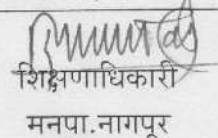 शिक्षणाधिकारी
मनपा.नागपूर